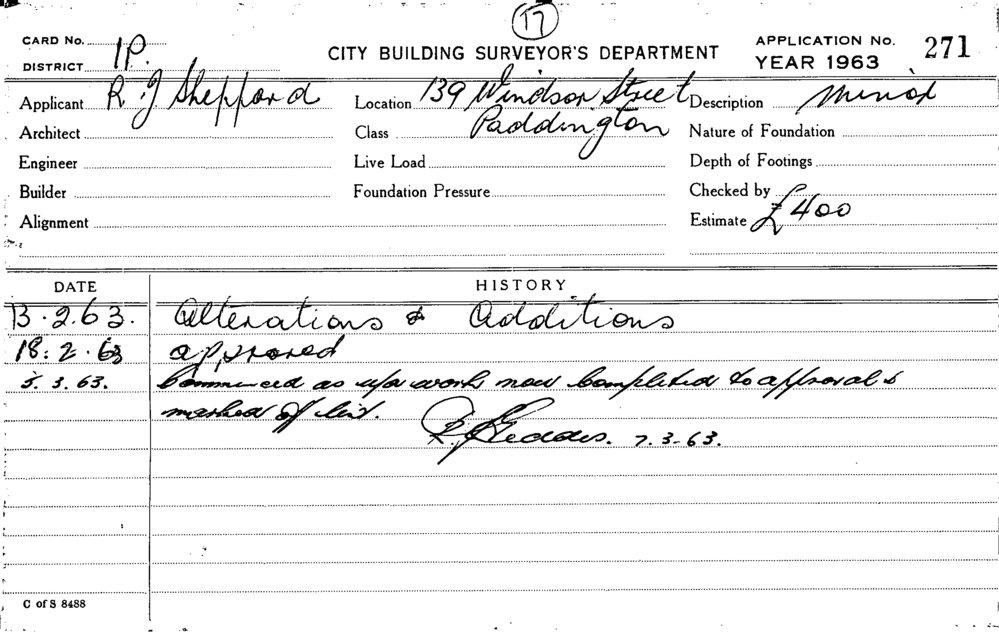 17
CARD No.
DISTRICT 1P.
CITY BUILDING SURVEYOR'S DEPARTMENT
APPLICATION No. 271
YEAR 1963
Applicant R. J Sheppard
Location 139 Windsor Street
Paddington
Description Minor
Architect
Class
Nature of Foundation
Engineer
Live Load
Depth of Footings
Builder
Foundation Pressure
Checked by
Alignment
Estimate £400
DATE
HISTORY
13.2.63. Alterations & Additions
18.2.63 approved
5.3.63. Commenced as work now completed to approval &
marked of list.
R. Geddes. 7.3-63.
C of S 8488